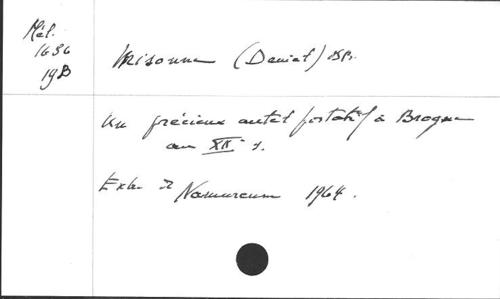 Mél.
1636
19 B
Misonne (Daniel)
Un précieux autel portatif à Brogne
au XIIe s.
Extr. de Namurcum 1964.